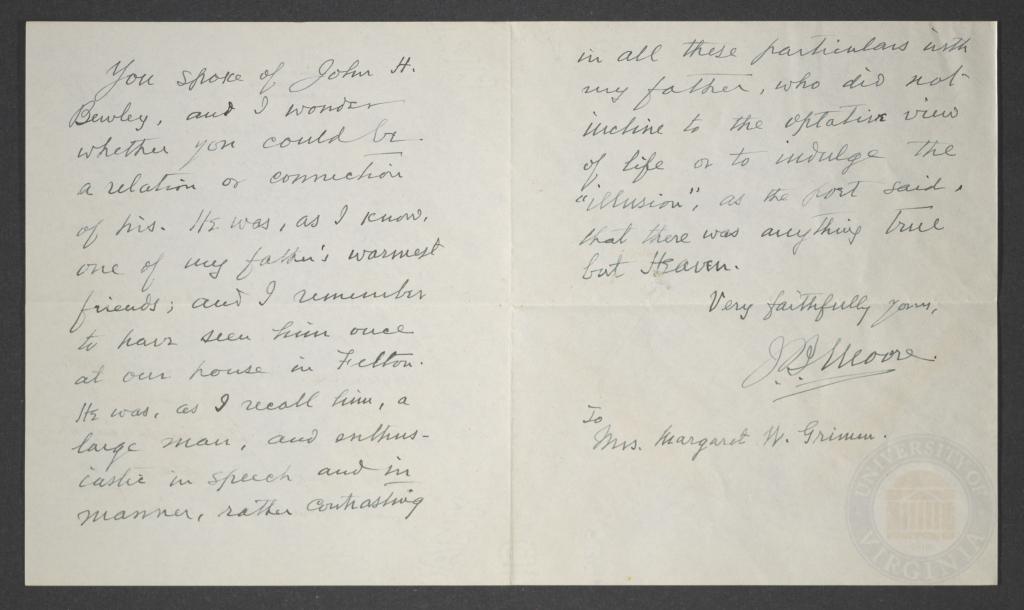 You spoke of John H.
Bewley, and I wonder
whether you could be
a relation or connection
of his. He was, as I know,
one of my father's warmest
friends; and I remember
to have seen him once
at our house in Felton.
He was, as I recall him, a
large man, and enthus-
iastic in speech and in
manner, rather contrasting
in all these particulars with
my father, who did not
incline to the optative view
of life or to indulge the
"illusion", as the poet said,
that there was anything true
but Heaven.
Very faithfully yours,
J. B. Moore.
To
Mrs. Margaret W.
UNIVERSITY OF
VIRGINIA